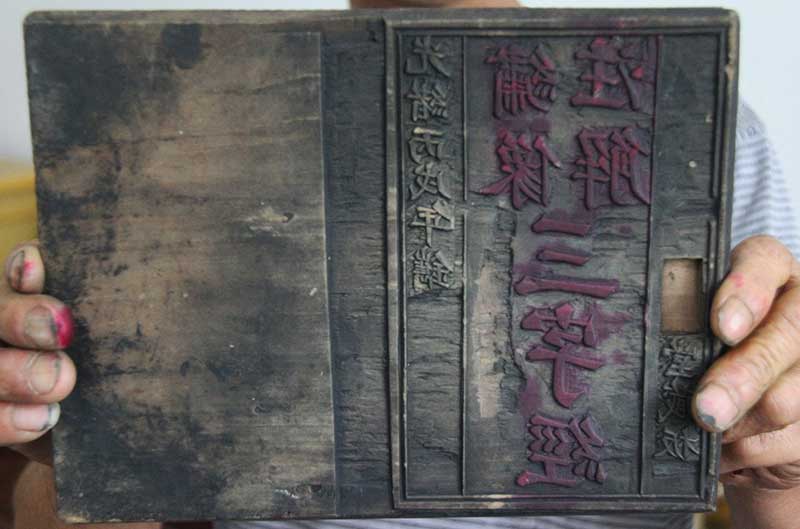 光緒丙戌年鐫
繡像
註解
三字經
藏板